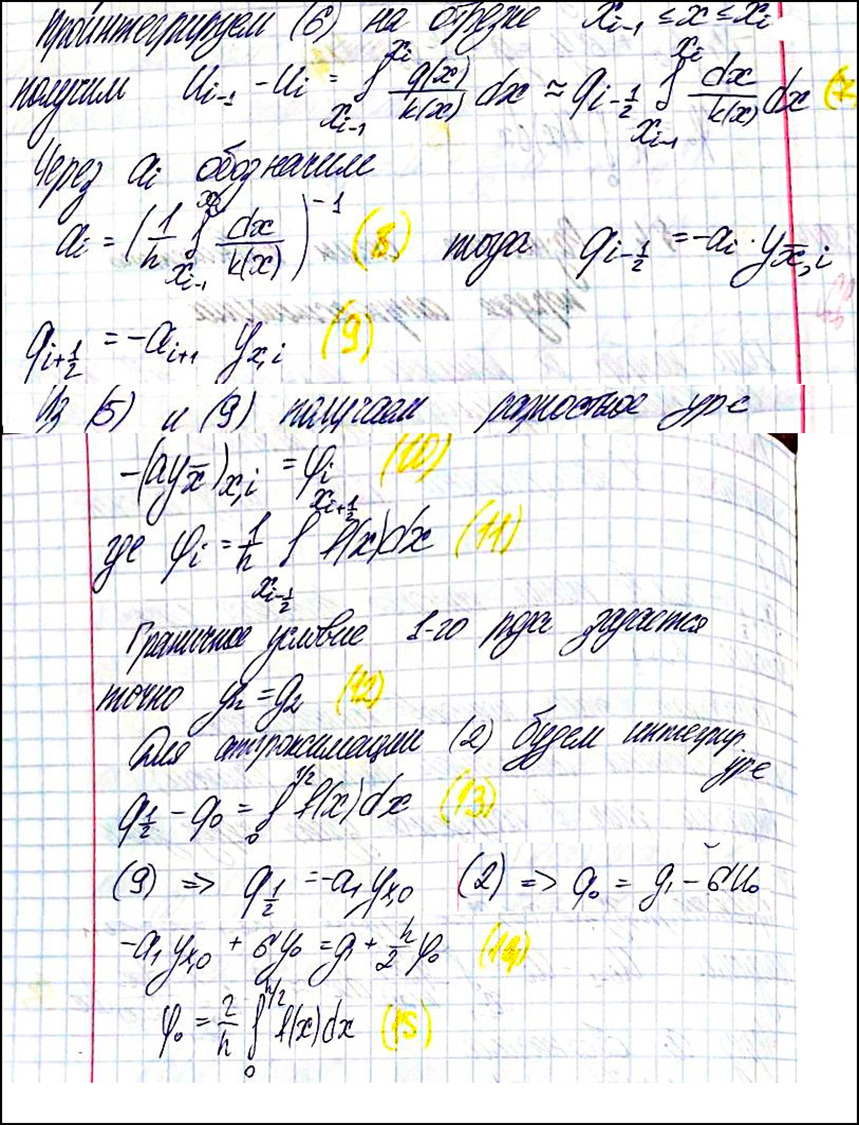 проинтегрируем (6) на отрезке x_{i-1} ≤ x ≤ x_i
получим u_{i-1} - u_i = ∫_{x_{i-1}}^{x_i} \frac{q(x)}{k(x)} dx ≈ q_{i-\frac{1}{2}} ∫_{x_{i-1}}^{x_i} \frac{dx}{k(x)} dx (7)
Через a_i обозначим
a_i = (\frac{1}{h} ∫_{x_{i-1}}^{x_i} \frac{dx}{k(x)})^{-1} (8) тогда q_{i-\frac{1}{2}} = -a_i · y_{\bar{x},i}
q_{i+\frac{1}{2}} = -a_{i+1} y_{x,i} (9)
Из (5) и (9) получаем разностное уре
-(ay_{\bar{x}})_{x,i} = φ_i (10)
где φ_i = \frac{1}{h} ∫_{x_{i-\frac{1}{2}}}^{x_{i+\frac{1}{2}}} f(x)dx (11)
Граничное условие 1-го рода задается
точно y_n = g_2 (12)
Для аппроксимации (2) будем интегрир. уре
q_{\frac{1}{2}} - q_0 = ∫_0^{h/2} f(x)dx (13)
(9) => q_{\frac{1}{2}} = -a_1 y_{x,0} (2) => q_0 = g_1 - σu_0
-a_1 y_{x,0} + σy_0 = g_1 + \frac{h}{2} φ_0 (14)
φ_0 = \frac{2}{h} ∫_0^{h/2} f(x)dx (15)